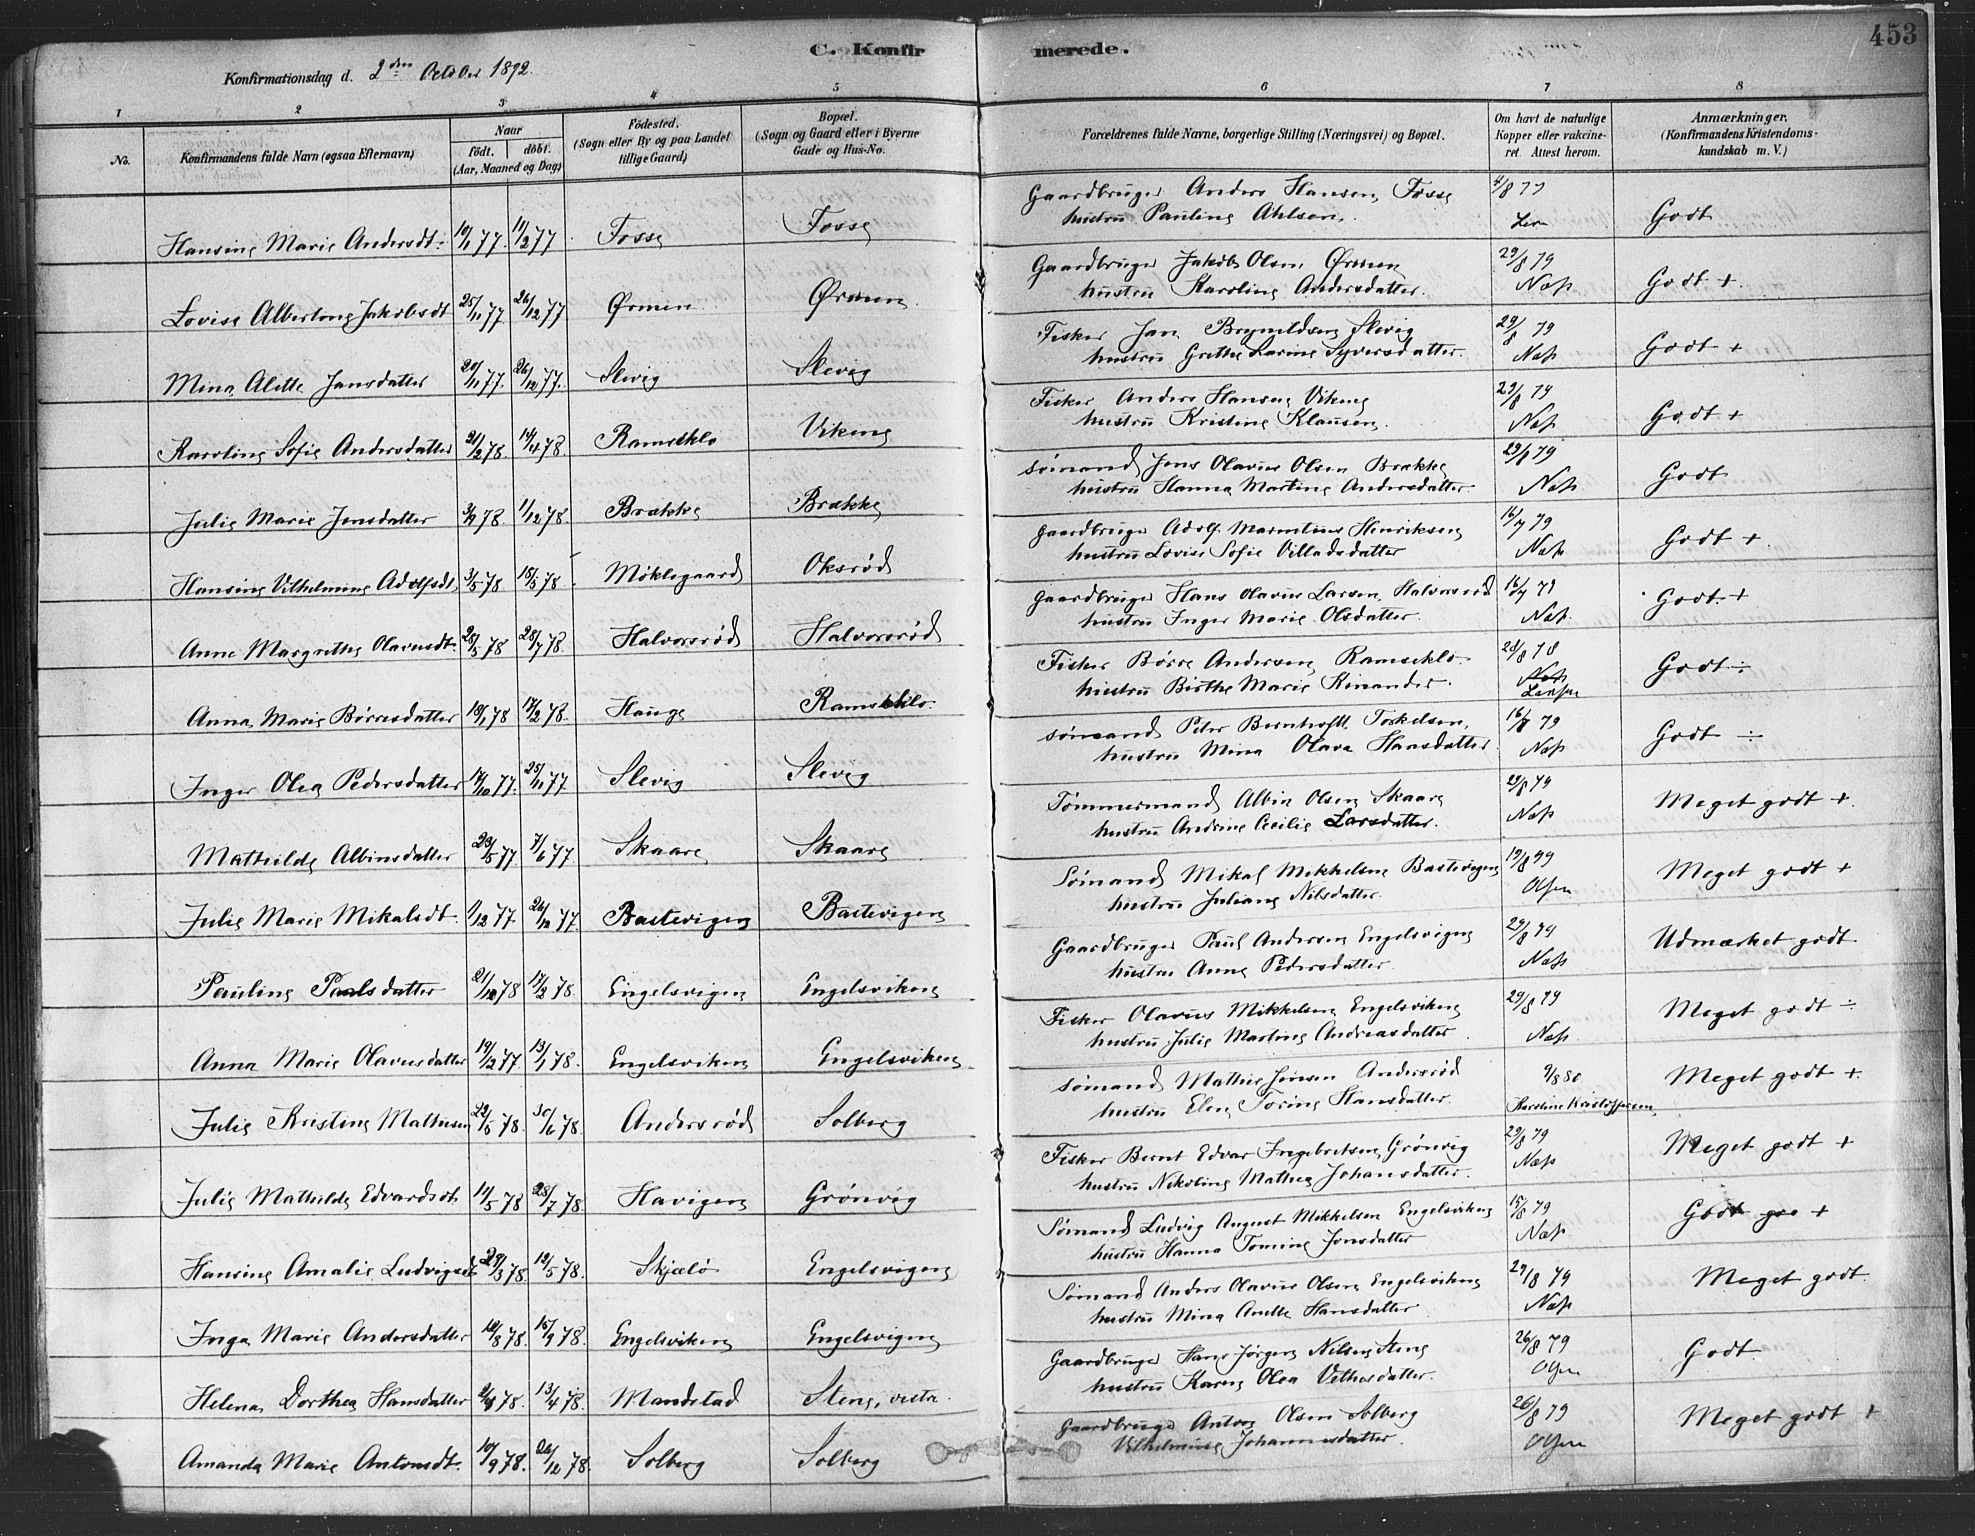 C. Konfirmerede.
453
Konfirmationsdag d. 2den October 1892.
1 2 3 4 5 6 7 8
No.
Konfirmandens fulde Navn (ogsaa Efternavn)
Naar
födt. döbt.
(Aar, Maaned og Dag)
Födested.
(Sogn eller By og paa Landet
tillige Gaard)
Bopæl.
(Sogn og Gaard eller i Byerne
Gade og Hus-No.
Forældrenes fulde Navne, borgerlige Stilling (Næringsvei) og Bopæl.
Om havt de naturlige
Kopper eller vakcine-
ret. Attest herom.
Anmærkninger.
(Konfirmandens Kristendoms-
kundskab m. V.)
Hansine Marie Andersdt. 10/1 77. 11/2 77 Fosse Fosse
Gaardbruger Anders Hansen Fosse 4/8 79
hustru Pauline Ahlsen. Godt
Lovise Albertine Jakobsdt 25/11 77 26/12 77 Ørmen Ørmen
Gaardbruger Jakob Olsen Ørmen 29/8 79
hustru Karoline Andersdatter. Næss Godt +
Mina Alette Jansdatter 20/11 77. 26/12 77. Slevig Slevig
Fisker Jan Brynildsen Slevig 29/8 79
hustru Grethe Larine Syversdatter. Næss Godt +
Karoline Sofie Andersdatter 21/2 78. 14/4 78. Ramseklo Vikene
Fisker Anders Hansen Vikene 29/8 79
hustru Kristine Klausen. Næss Godt +
Julie Marie Jensdatter 3/9 78. 1/12 78. Brække Brække
Sømand Jens Olavus Olsen Brække 29/8 79
hustru Hanna Martine Andersdatter. Næss Godt
Hansine Vilhelmine Adolfsdt. 3/5 78. 15/5 78. Møklegaard Oksrød
Gaardbruger Adolf Henriksen 16/7 79
hustru Lovise Sofie Villadsdatter Næss Godt +
Anne Margrethe Olavusdt. 28/5 78 28/7 78. Halvorsrød Halvorsrød
Gaardbruger Hans Olavus Larsen Halvorsrød 16/7 79
hustru Inger Marie Olsdatter. Næss Godt. +
Anna Marie Börresdatter 18/1 78 17/2 78. Hauge Ramseklo.
Fisker Børre Andersen Ramseklo. 28/8 78
hustru Birthe Marie Kinander. Godt ÷
Inger Olea Pedersdatter 14/10 77. 25/11 77. Slevig Slevig
Sømand Peter Bernhoft Torkelsen. 16/8 79
hustru Mina Olava Hansdatter. Næss Godt ÷
Mathilde Albinsdatter 23/5 77 7/6 77 Skaare Skaare
Tømmermand Albin Olsen Skaare 29/8 79
hustru Andrine Cecilie Larsdatter. Næss Meget godt +
Julie Marie Mikalsdt. 1/12 77. 26/12 77. Bastevigen Bastevigen
Sømand Mikal Mikkelsen Bastevigen 19/8 79
hustru Juliane Nilsdatter. Meget godt +
Pauline Paalsdatter 21/12 78 17/2 78. Engelsvigen Engelsviken
Gaardbruger Paul Andersen Engelsvigen 29/8 79
hustru Anne Pedersdatter. Næss Udmærket godt
Anna Marie Olavusdatter 19/12 77. 13/1 78. Engelsviken Engelsviken
Fisker Olavus Mikkelsen Engelsviken 29/8 79
hustru Julie Martine Andreasdatter. Næss Meget godt ÷
Julie Kristine Mathisen 22/5 78. 30/6 78. Andersrød Solberg
Sømand Mathis Jensen Andersrød 9/8 80
hustru Elen Torine Hansdatter. Karoline Kristoffersen Meget godt +
Julie Mathilde Edvardsdt. 11/5 78 28/7 78. Havigen Grönvig
Fisker Bernt Edvar Ingebretsen Grönvig 29/8 79
hustru Nikoline Mathea Johansdatter. Næss Meget godt +
Hansine Amalie Ludvigsdt 29/3 78. 12/5 78. Skjælö Engelsvigen
Sømand Ludvig August Mikkelsen Engelsviken 15/8 79
hustru Hanna Tomine Jensdatter Næss Godt +
Inga Marie Andersdatter 12/8 78. 15/9 78. Engelsviken Engelsvigen
Sømand Anders Olavus Olsen Engelsviken 29/8 79
hustru Mina Anette Hansdatter. Næss Meget godt
Helena Dorthea Hansdatter 2/4 78. 13/4 78. Mandstad Stene, vestr.
Gaardbruger Hans Jørgen Nilsen Stene 26/8 79
hustru Karen Olea Vethesdatter. Godt
Amanda Marie Antonsdt. 10/9 78. 26/12 78. Solberg Solberg
Gaardbruger Anton Olsen Solberg 26/8 79
Vilhelmine Johannesdatter. Meget godt +